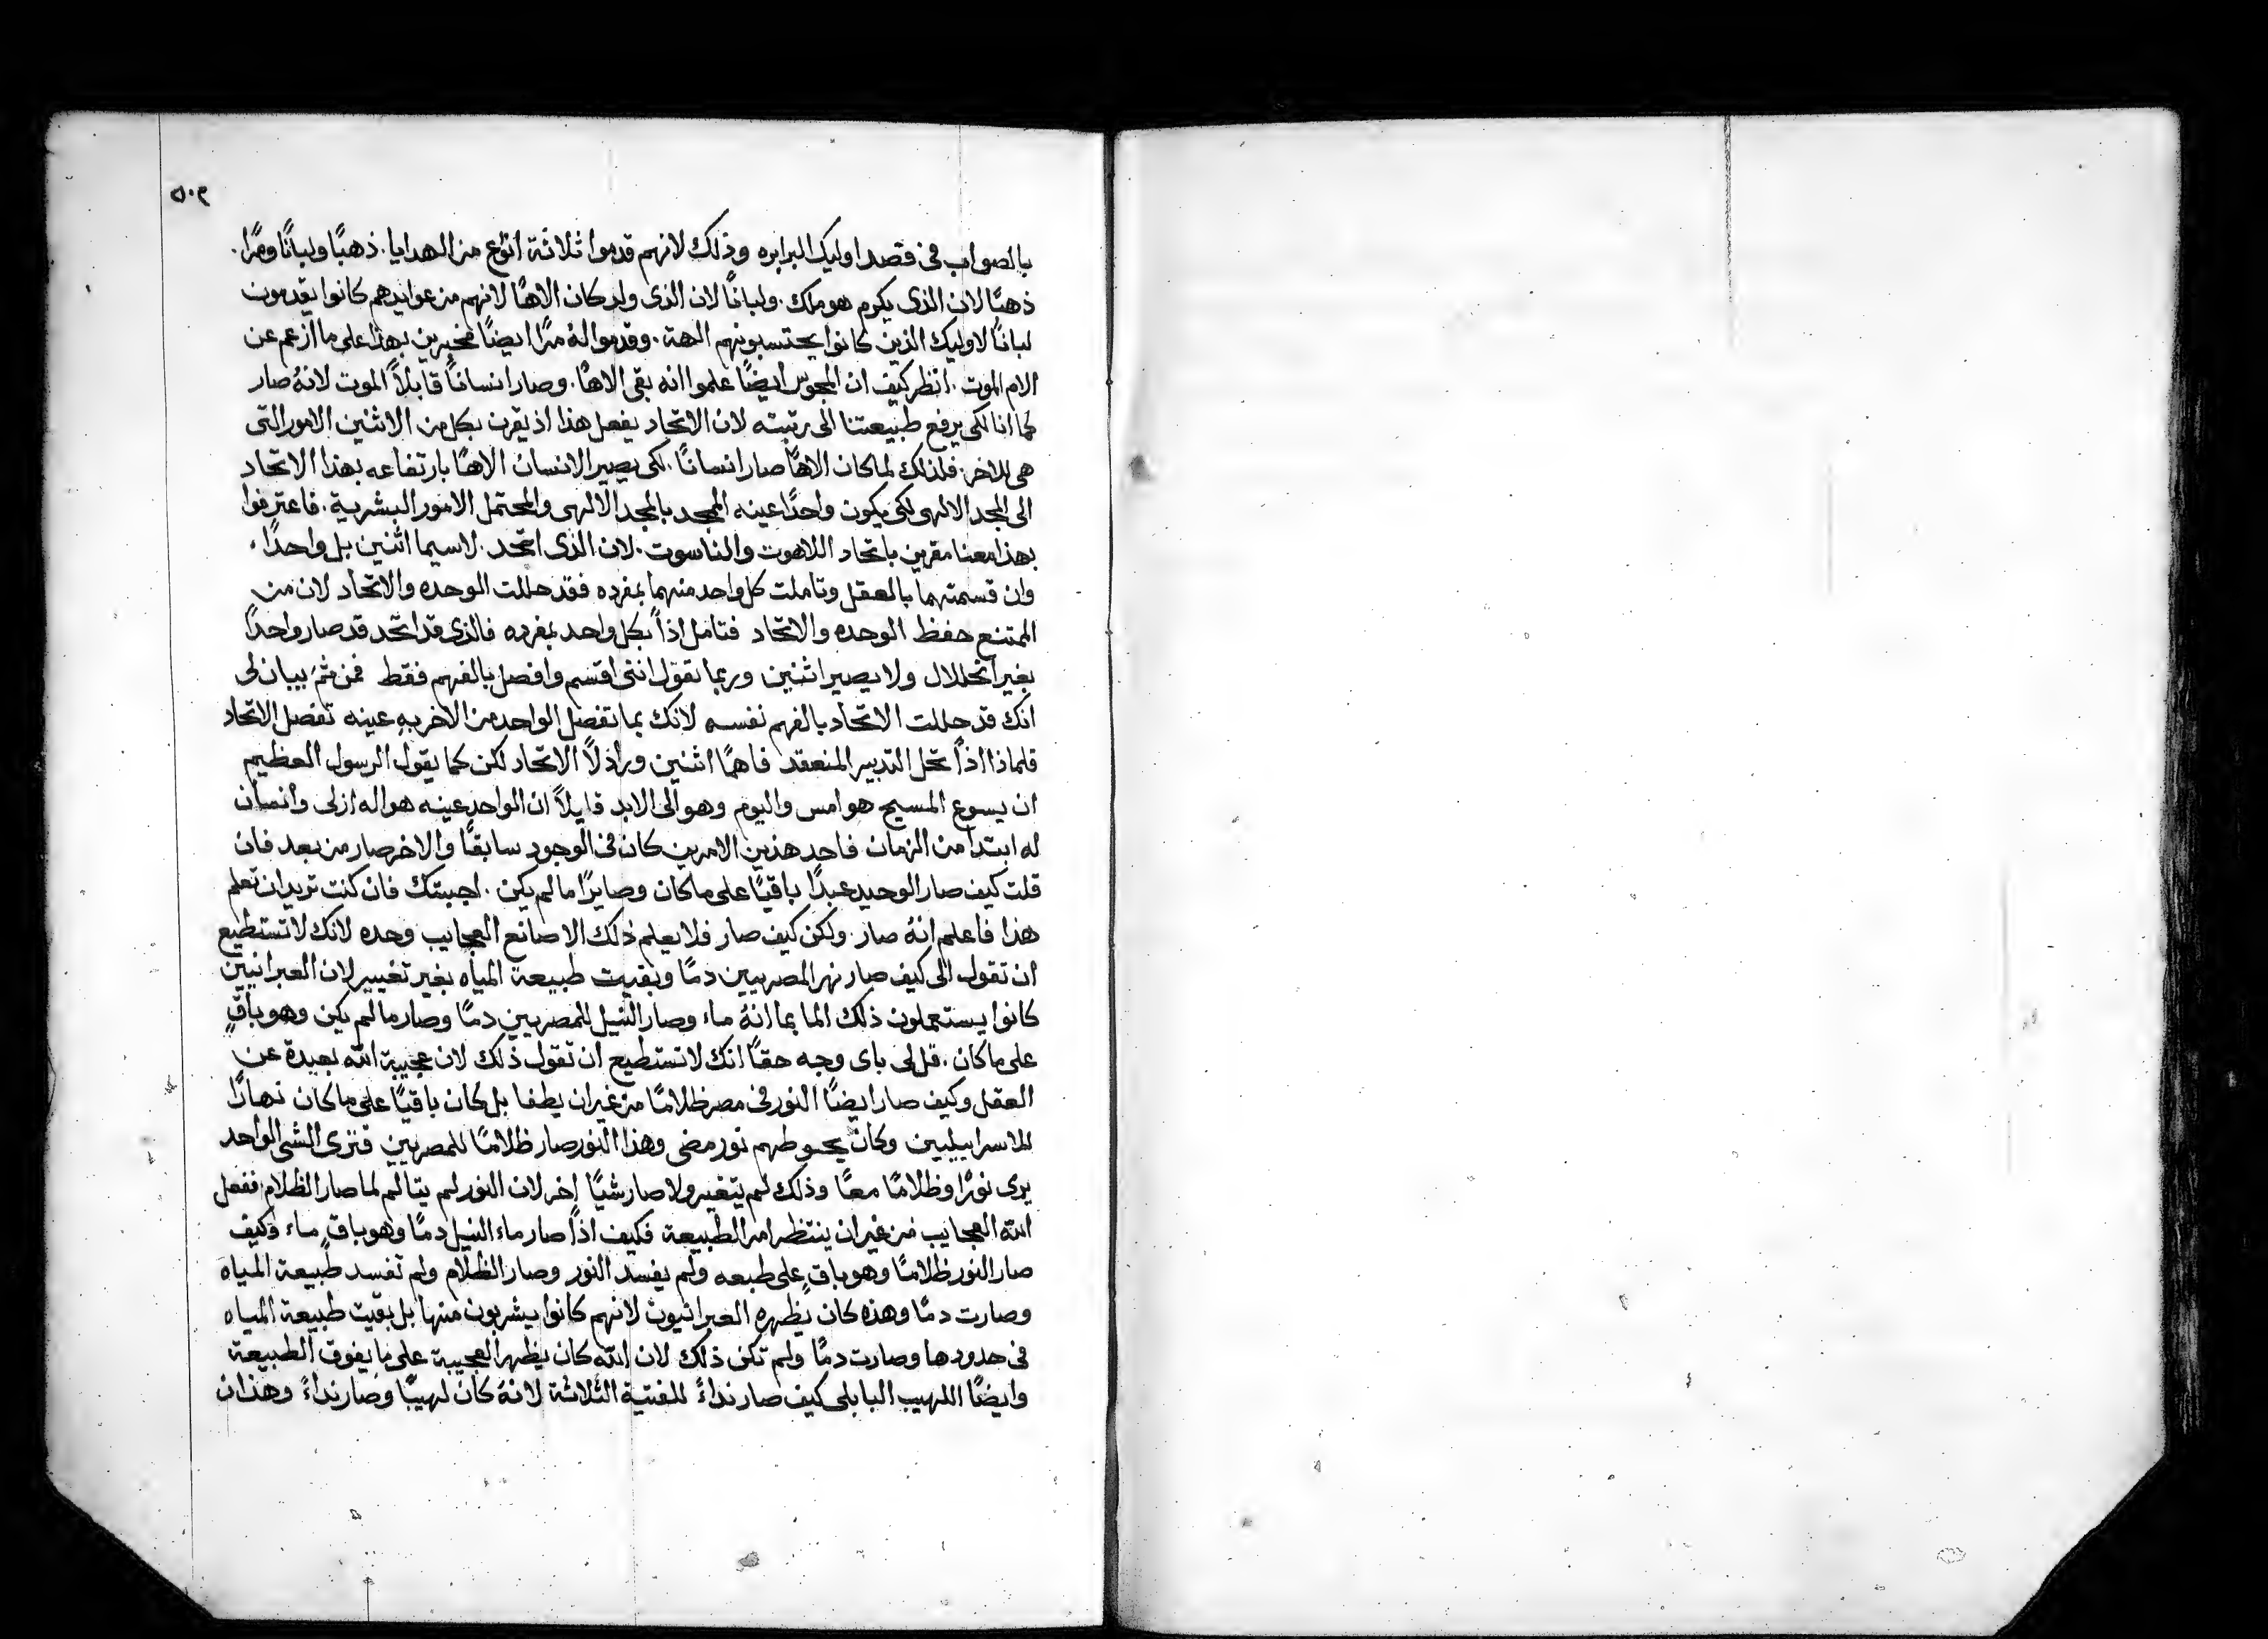 ٥٠٣
بالصواب فى قصد اوليك البرابره وذلك لانهم قدموا ثلاثة انوع من الهدايا. ذهبًا ولبانًا ومرًا.
ذهبًا لان الذى يكرم هو ملك. ولبانًا لان الذى ولد كان الاهًا لانهم من عوايدهم كانوا يقدمون
لبانًا لاوليك الذين كانوا يحتسبونهم الهة. وقدموا لهُ مرًا ايضًا مخبرين بهذا على ما ازعم عن
الام الموت. انظر كيف ان المجوس ايضًا علموا انه بقى الاهًا. وصار انسانًا قابلاً الموت لانهُ صار
كما انا لكى يرفع طبيعتنا الى رتبته لان الاتحاد يفعل هذا اذ يقرن بكل من الاثنين الامور التى
هى للاخر. فلذلك لما كان الاهًا صار انسانًا. لكى يصير الانسان الاهًا بارتفاعه بهذا الاتحاد
الى المجد الالهى لكى يكون واحدًا عينه الممجد بالمجد الالهى والمحتمل الامور البشرية. فاعترفوا
بهذا معنا مقرين باتحاد اللاهوت والناسوت. لان الذى اتحد. لاسيما اثنين بل واحدًا.
وان قسمتهما بالعقل وتاملت كل واحد منهما بمفرده فقد حللت الوحده والاتحاد لان من
الممتنع حفظ الوحده والاتحاد فتامل اذاً بكل واحد بمفرده فالذى قد اتحد قد صار واحدًا
بغير انحلال ولا يصير اثنين وربما تقول اننى اقسم وافصل بالفهم فقط فمن ثمَ بيان لى
انك قد حللت الاتحاد بالفهم نفسه لانك بما تفصل الواحد من الاخر بهِ عينه تفصل الاتحاد
فلماذا اذاً تحل التدبير المنعقد فاهمًا اثنين وراذلاً الاتحاد لكن كما يقول الرسول العظيم
ان يسوع المسيح هو امس واليوم وهو الى الابد قايلاً ان الواحد عينه هو اله ازلى وانسان
له ابتدا من الزمان فاحد هذين الامرين كان فى الوجود سابقًا والاخر صار من بعد فان
قلت كيف صار الوحيد عبدًا باقيًا على ما كان وصايرًا ما لم يكن. اجبتك فان كنت تريد ان تعلم
هذا فاعلم انهُ صار. ولكن كيف صار فلا يعلم ذلك الا صانع العجايب وحده لانك لا تستطيع
ان تقول لى كيف صار نهر المصريين دمًا وبقيت طبيعة المياه بغير تغيير لان العبرانيين
كانوا يستعملون ذلك الما بما انهُ ماء وصار النيل للمصريين دمًا وصار ما لم يكن وهو باقٍ
على ما كان. قل لى باى وجه حقًا انك لا تستطيع ان تقول ذلك لان عجيبة الله بعيدة عن
العقل وكيف صار ايضًا النور فى مصر ظلامًا من غير ان يطفا بل كان باقيًا على ما كان نهارًا
للاسراييليين وكان يحوطهم نور مضى وهذا النور صار ظلامًا للمصريين فترى الشى الواحد
يرى نورًا وظلامًا معًا وذلك لم يتغير ولا صار شيًا اخر لان النور لم يتالم لما صار الظلام ففعل
الله العجايب من غير ان ينتظر امر الطبيعة فكيف اذاً صار ماء النيل دمًا وهو باقٍ ماء وكيف
صار النور ظلامًا وهو باقٍ على طبعه ولم يفسد النور وصار الظلام ولم تفسد طبيعة المياه
وصارت دمًا وهذه كان يظهره العبرانيون لانهم كانوا يشربون منها بل بقيت طبيعة المياه
فى حدودها وصارت دمًا ولم تكن ذلك لان الله كان يظهر العجيبة على ما يفوق الطبيعة
وايضًا اللهيب البابلى كيف صار نداءً للفتية الثلاثة لانهُ كان لهيبًا وصار نداءً وهذان